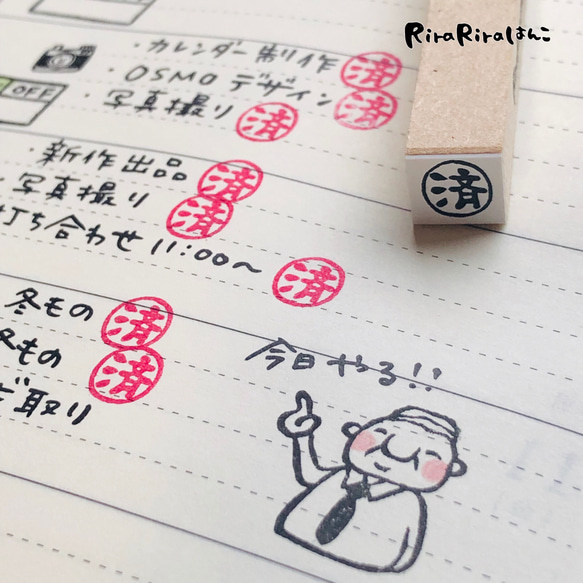 RiraRiraはんこ
・カレンダー制作 済
・OSMO デザイン 済
・写真撮り 済
OFF
・新作出品 済
・写真撮り 済
打ち合わせ 11:00〜 済
冬もの 済
冬もの 済
取り
今日やる!!
済